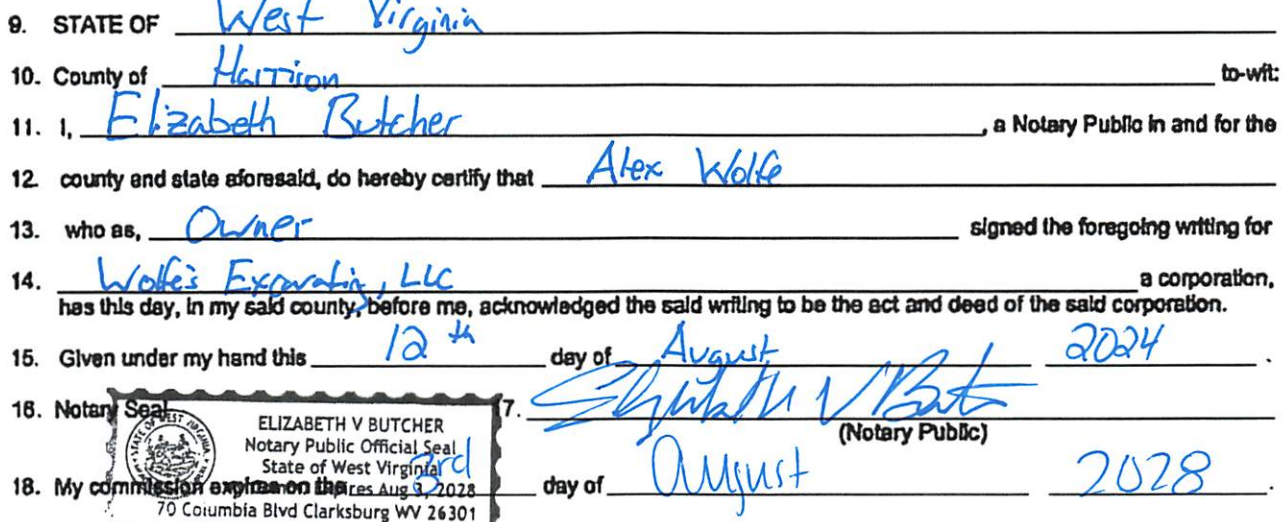 9. STATE OF West Virginia
10. County of Harrison to-wit:
11. I, Elizabeth Butcher, a Notary Public in and for the
12. county and state aforesaid, do hereby certify that Alex Wolfe
13. who as, Owner signed the foregoing writing for
14. Wolfe's Excavating, LLC a corporation,
has this day, in my said county, before me, acknowledged the said writing to be the act and deed of the said corporation.
15. Given under my hand this 12th day of August 2024.
16. Notary Seal 17. Elizabeth V
(Notary Public)
ELIZABETH V BUTCHER
Notary Public Official Seal
State of West Virginia
Expires Aug 3, 2028
70 Columbia Blvd Clarksburg WV 26301
STATE OF WEST VIRGINIA
18. My commission expires on the 3rd day of August 2028.